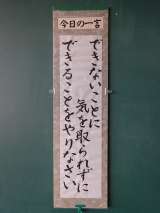 今日の一言
できないことに
気を取られずに
できることをやりなさい